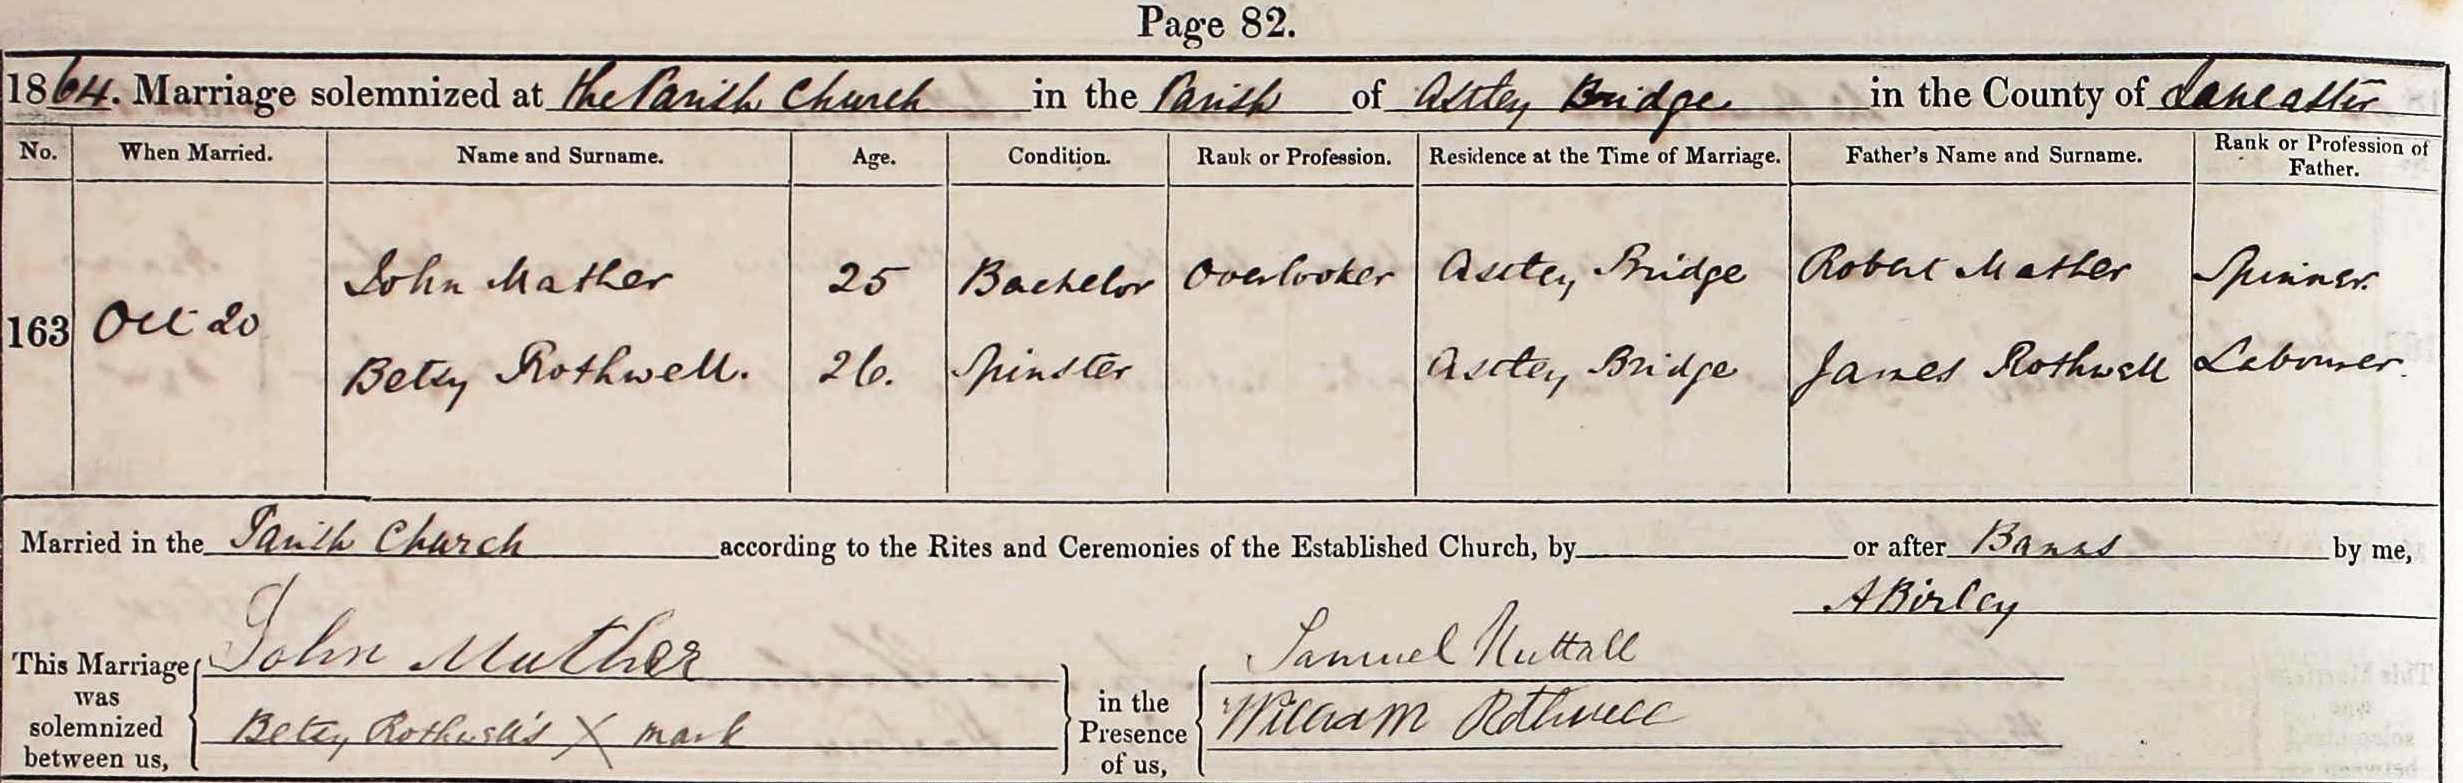 Page 82.
1864. Marriage solemnized at the Parish Church in the Parish of Astley Bridge in the County of Lancaster
No. When Married. Name and Surname. Age. Condition. Rank or Profession. Residence at the Time of Marriage. Father's Name and Surname. Rank or Profession of Father.
John Mather 25 Bachelor Overlooker Astley Bridge Robert Mather Spinner.
163 Oct 20
Betsy Rothwell. 26. Spinster Astley Bridge James Rothwell Labourer.
Married in the Parish Church according to the Rites and Ceremonies of the Established Church, by or after Banns by me,
A Birley
This Marriage was solemnized between us, John Mather
Betsy Rothwell's X mark
in the Presence of us, Samuel Nuttall
William Rothwell